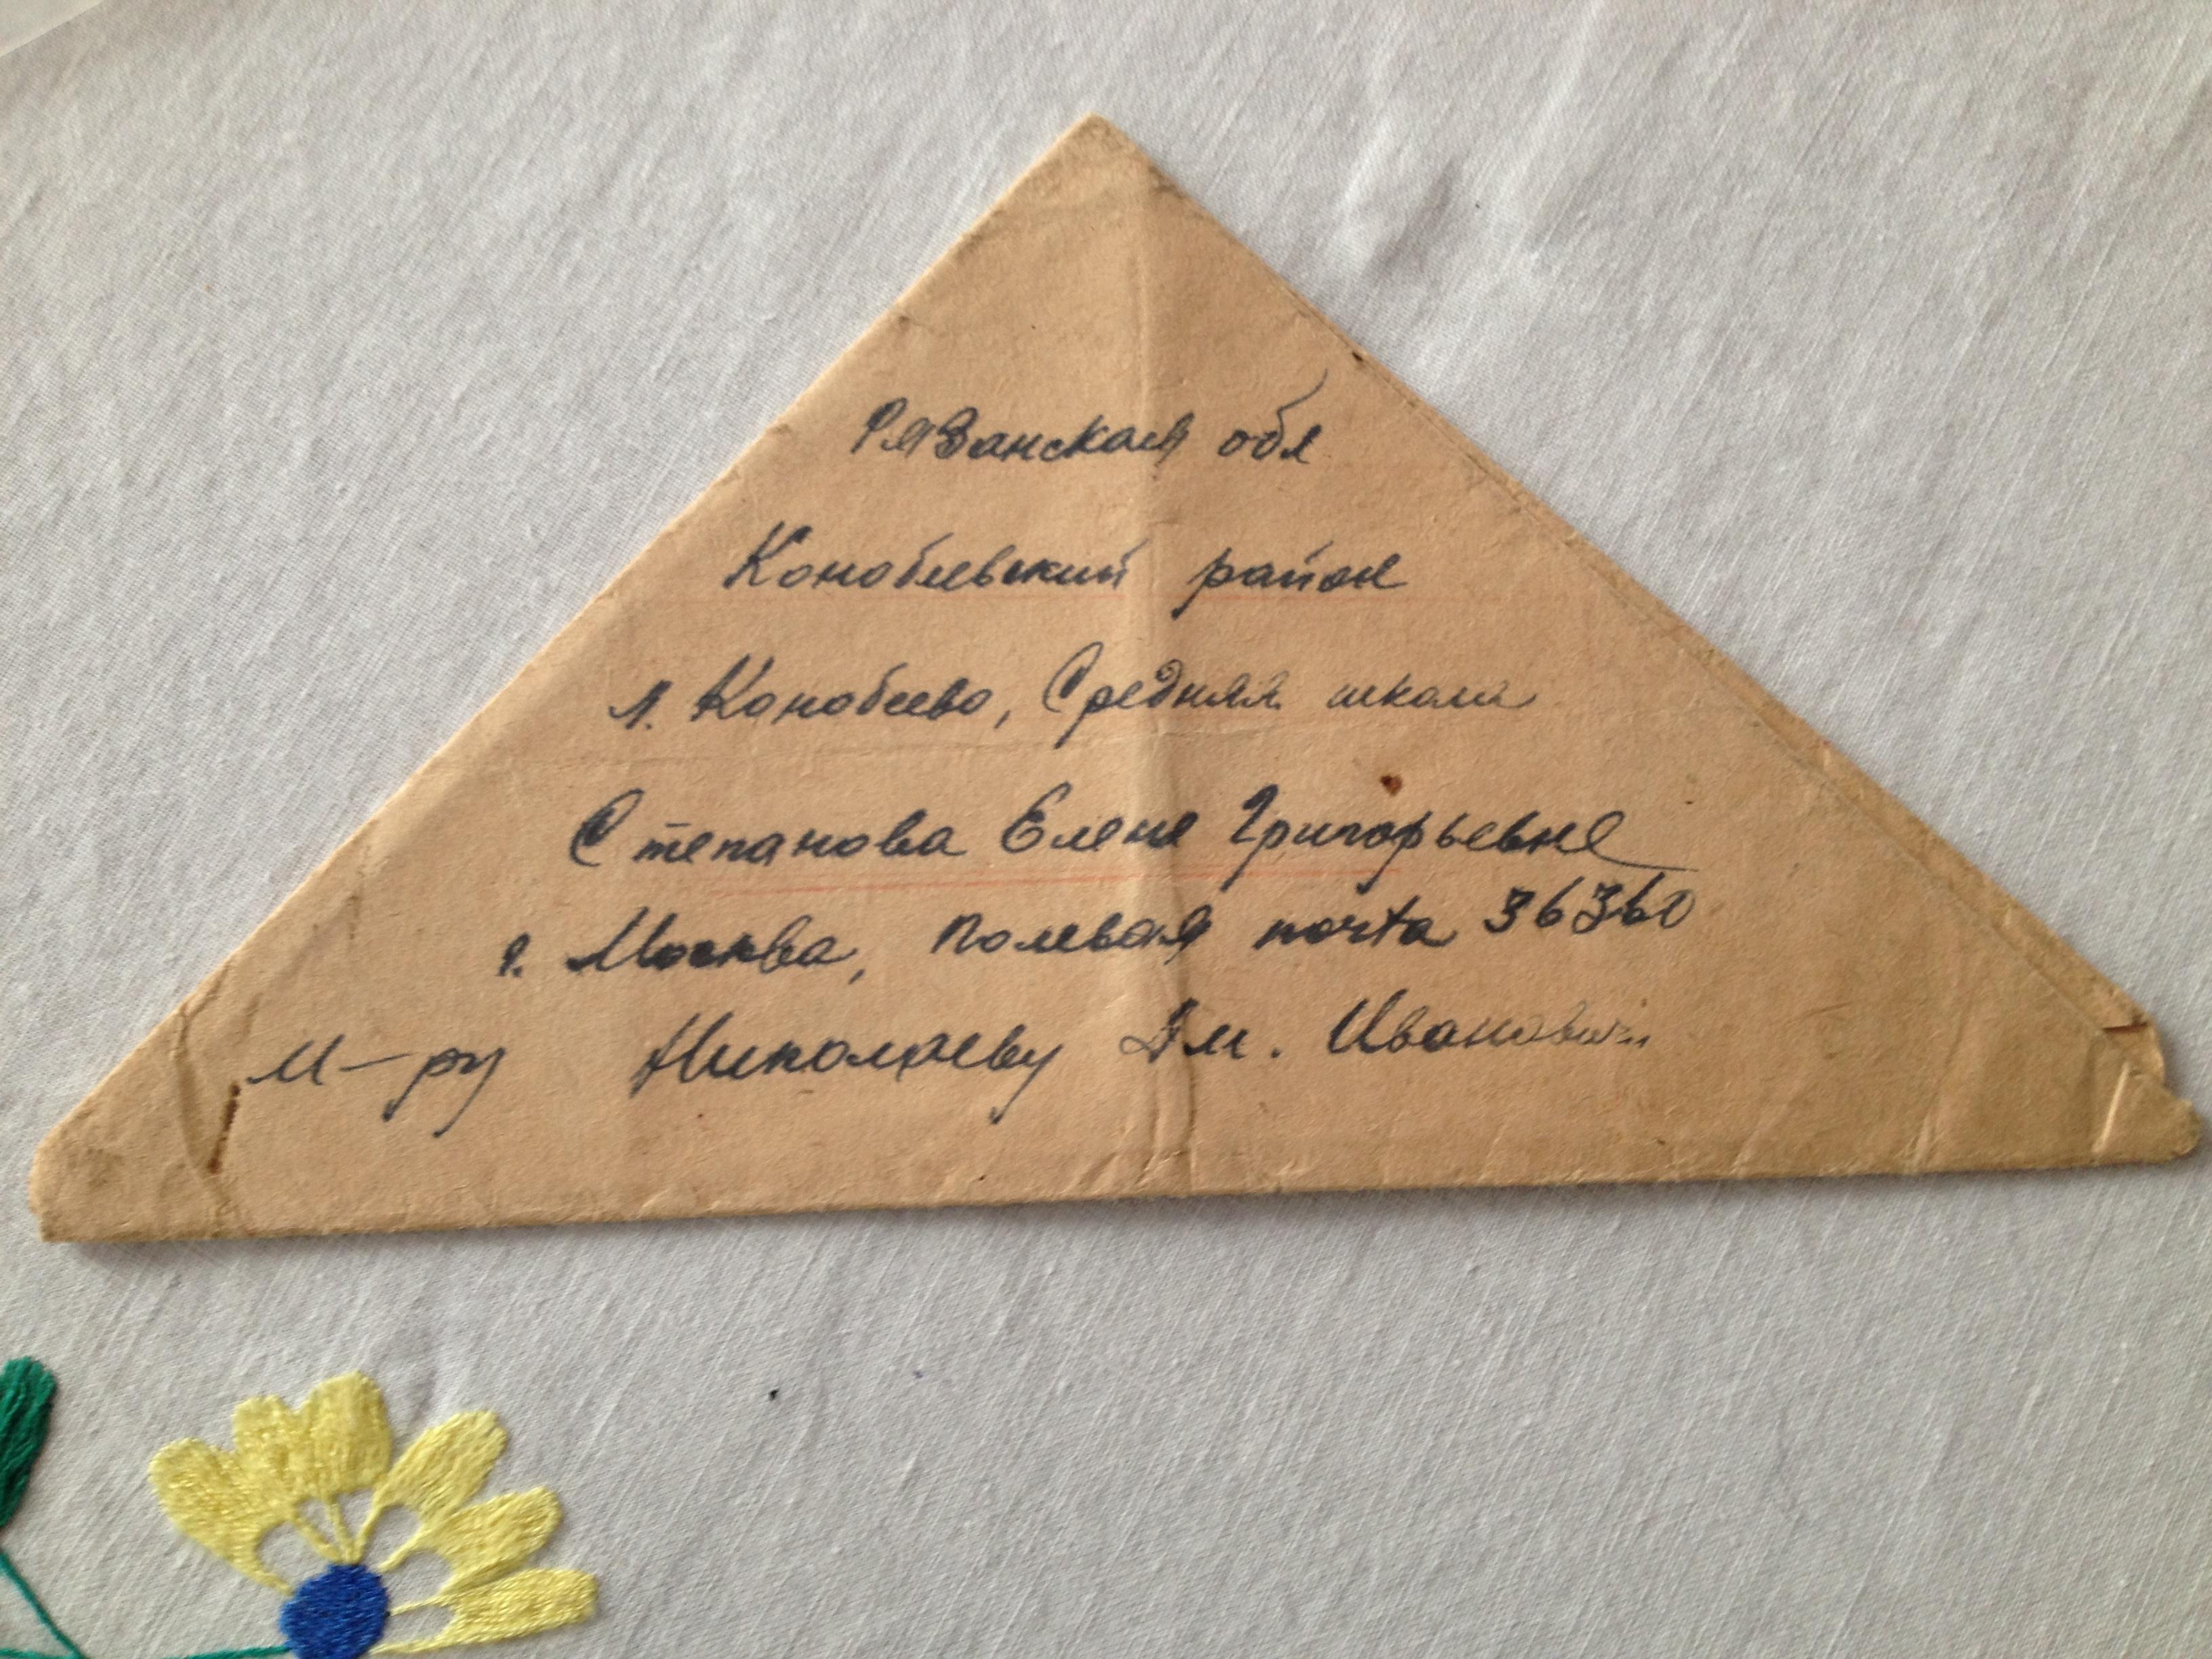 Рязанская обл
Конобеевский район
п. Конобеево, Средняя школа
Степанова Елене Григорьевне
г. Москва, Полевая почта 36360
М-ру Николаеву Дм. Иванович